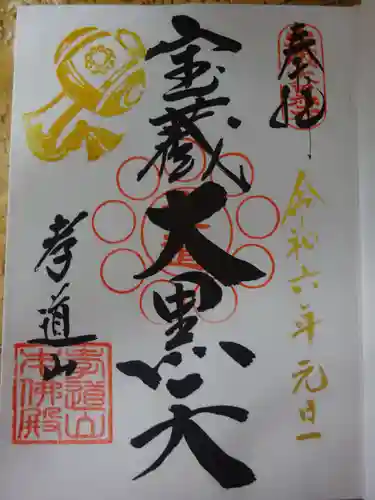 奉拝
令和六年元日
宝蔵大黒天
孝道山
孝道山
本佛殿